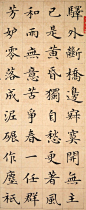 驛外斷橋邊寂寞開無主
已是黃昏獨自愁更著風
和雨無意苦爭春一任群
芳妒零落成泥碾作塵祇